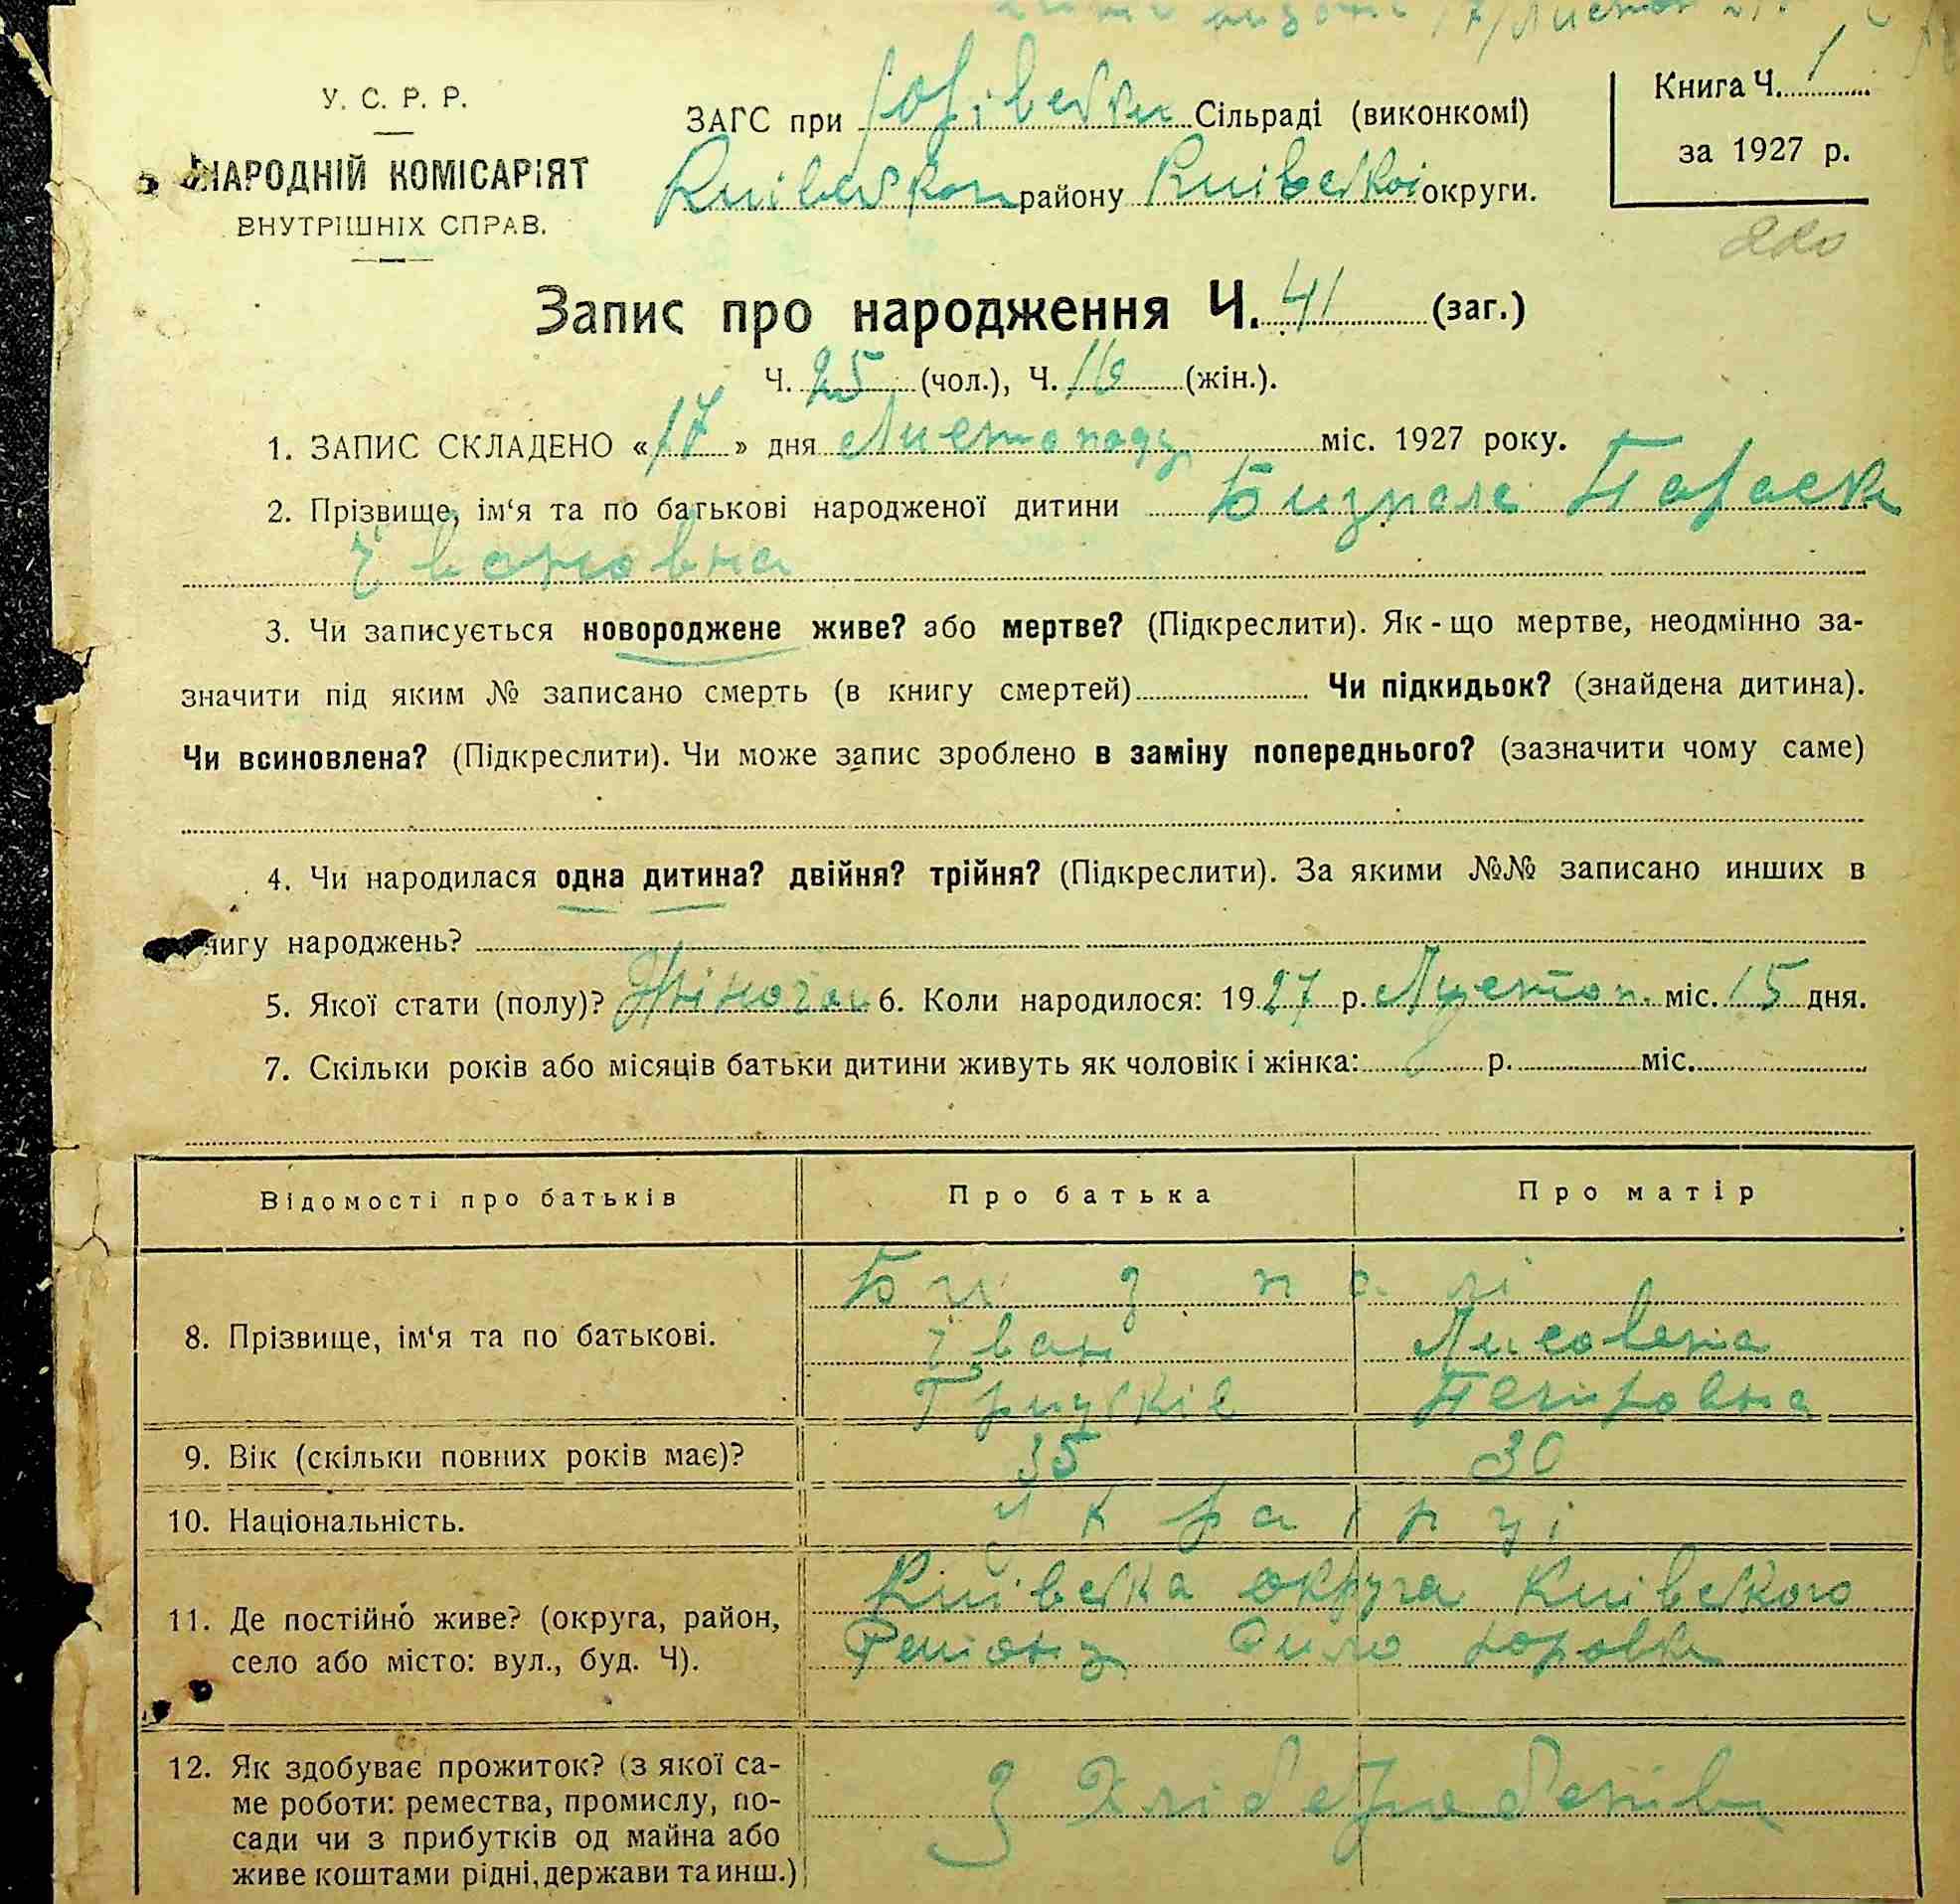 У. С. Р. Р.
НАРОДНІЙ КОМІСАРІЯТ
ВНУТРІШНІХ СПРАВ.
ЗАГС при Софіевски Сільраді (виконкомі)
Київском району Київскої округи.
Книга Ч. 1
за 1927 р.
220
Запис про народження Ч. 41 (заг.)
Ч. 25 (чол.), Ч. 16 (жін.).
1. ЗАПИС СКЛАДЕНО «17» дня Листопаду міс. 1927 року.
2. Прізвище, ім‘я та по батькові народженої дитини Бизноле Параска
Івановна
3. Чи записується новороджене живе? або мертве? (Підкреслити). Як-що мертве, неодмінно за-
значити під яким № записано смерть (в книгу смертей) Чи підкидьок? (знайдена дитина).
Чи всиновлена? (Підкреслити). Чи може запис зроблено в заміну попереднього? (зазначити чому саме)
4. Чи народилася одна дитина? двійня? трійня? (Підкреслити). За якими №№ записано инших в
нигу народжень?
5. Якої стати (полу)? Жіночої 6. Коли народилося: 1927 р. Листоп. міс. 15 дня.
7. Скільки років або місяців батьки дитини живуть як чоловік і жінка: р. міс.
Відомості про батьків Про батька Про матір
8. Прізвище, ім‘я та по батькові.
Іван
Грицьків Петровна
9. Вік (скільки повних років має)? 35 30
10. Національність. Українці
11. Де постійно живе? (округа, район,
село або місто: вул., буд. Ч).
Київська округа Київского
Району
12. Як здобуває прожиток? (з якої са-
ме роботи: ремества, промислу, по-
сади чи з прибутків од майна або
живе коштами рідні, держави та инш.)
З